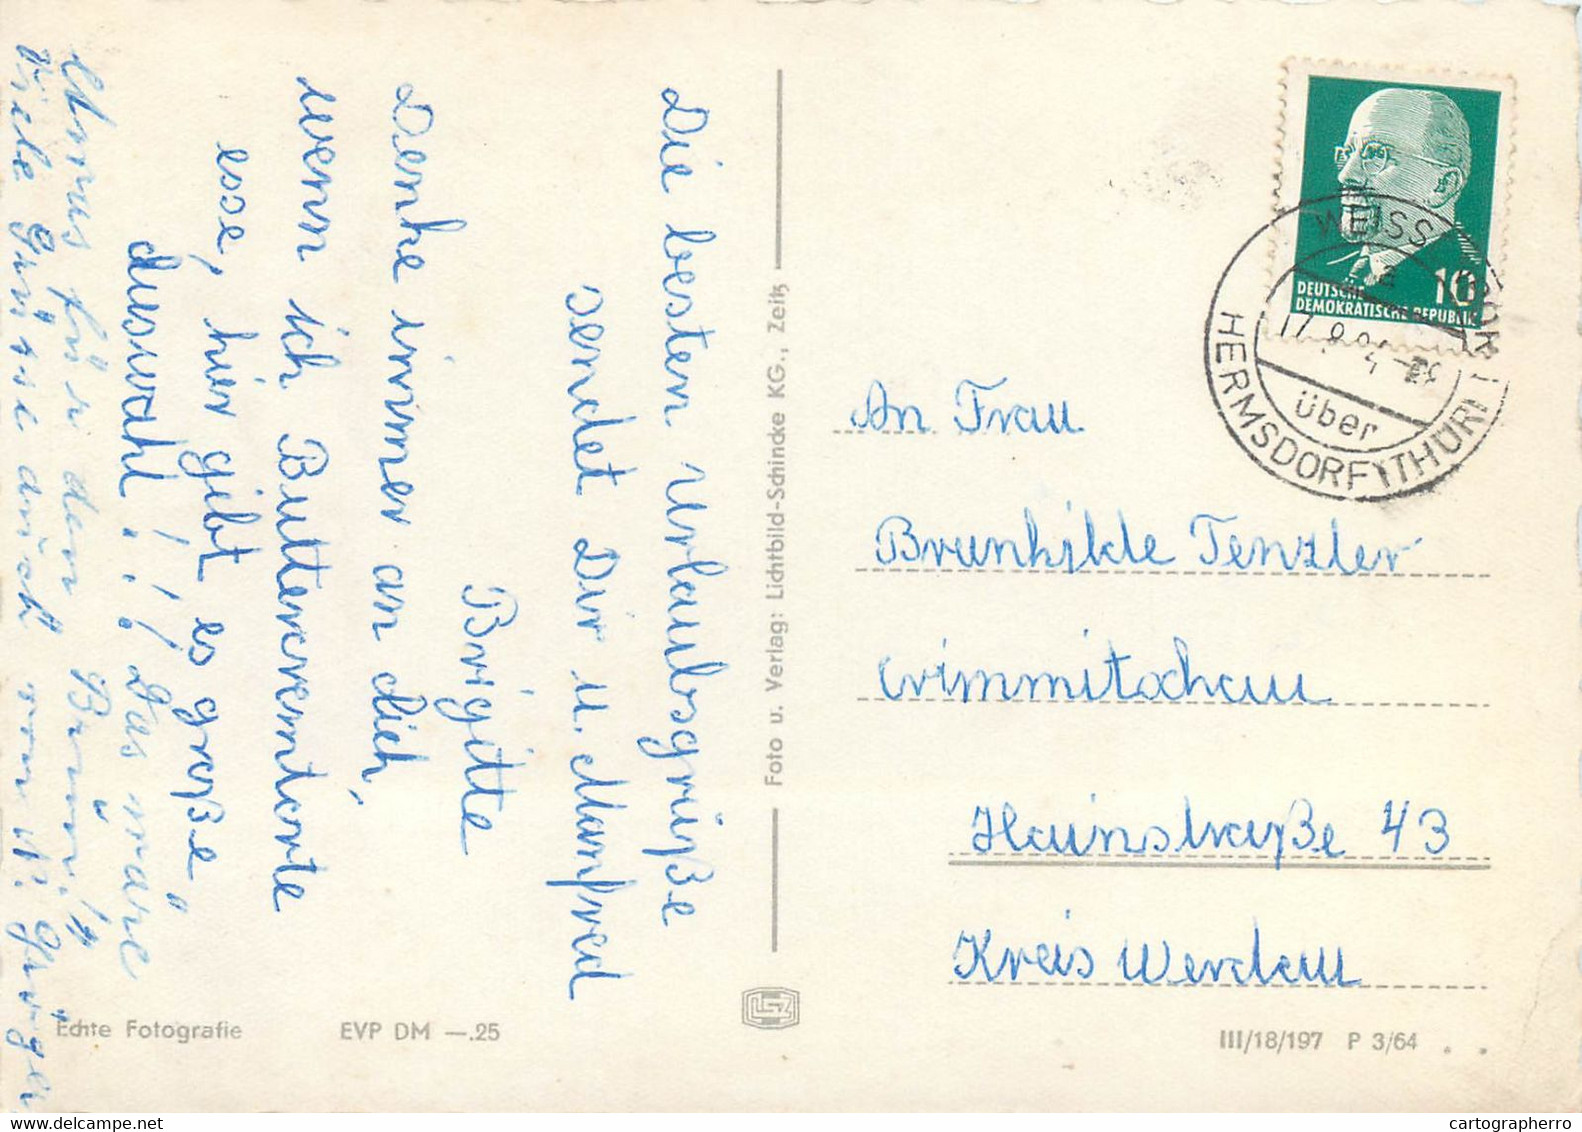 Die besten Urlaubsgrüße
sendet Dir u. Manfred
Brigitte
Denke immer an dich,
wenn ich Buttercremtorte
esse, hier gibt es große
Auswahl!!! "Das wäre
was für den Bruni!"
Viele Grüsse auch von
Foto u. Verlag: Lichtbild-Schincke KG., Zeitz
DEUTSCHE
DEMOKRATISCHE REPUBLIK
10
WEISS
a
17.
über
HERMSDORF (THÜR)
An Frau
Brunhilde Tenzler
Crimmitschau
Hainstraße 43
Kreis Werdau
Echte Fotografie EVP DM —.25
III/18/197 P 3/64
cartographerro